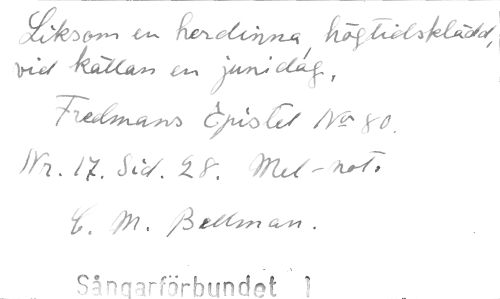 Liksom en herdinna, högtidsklädd,
vid källan en junidag,
Fredmans Epistel No 80.
Nr. 17. Sid. 28. Mel-not.
C. M. Bellman.
Sångarförbundet 1